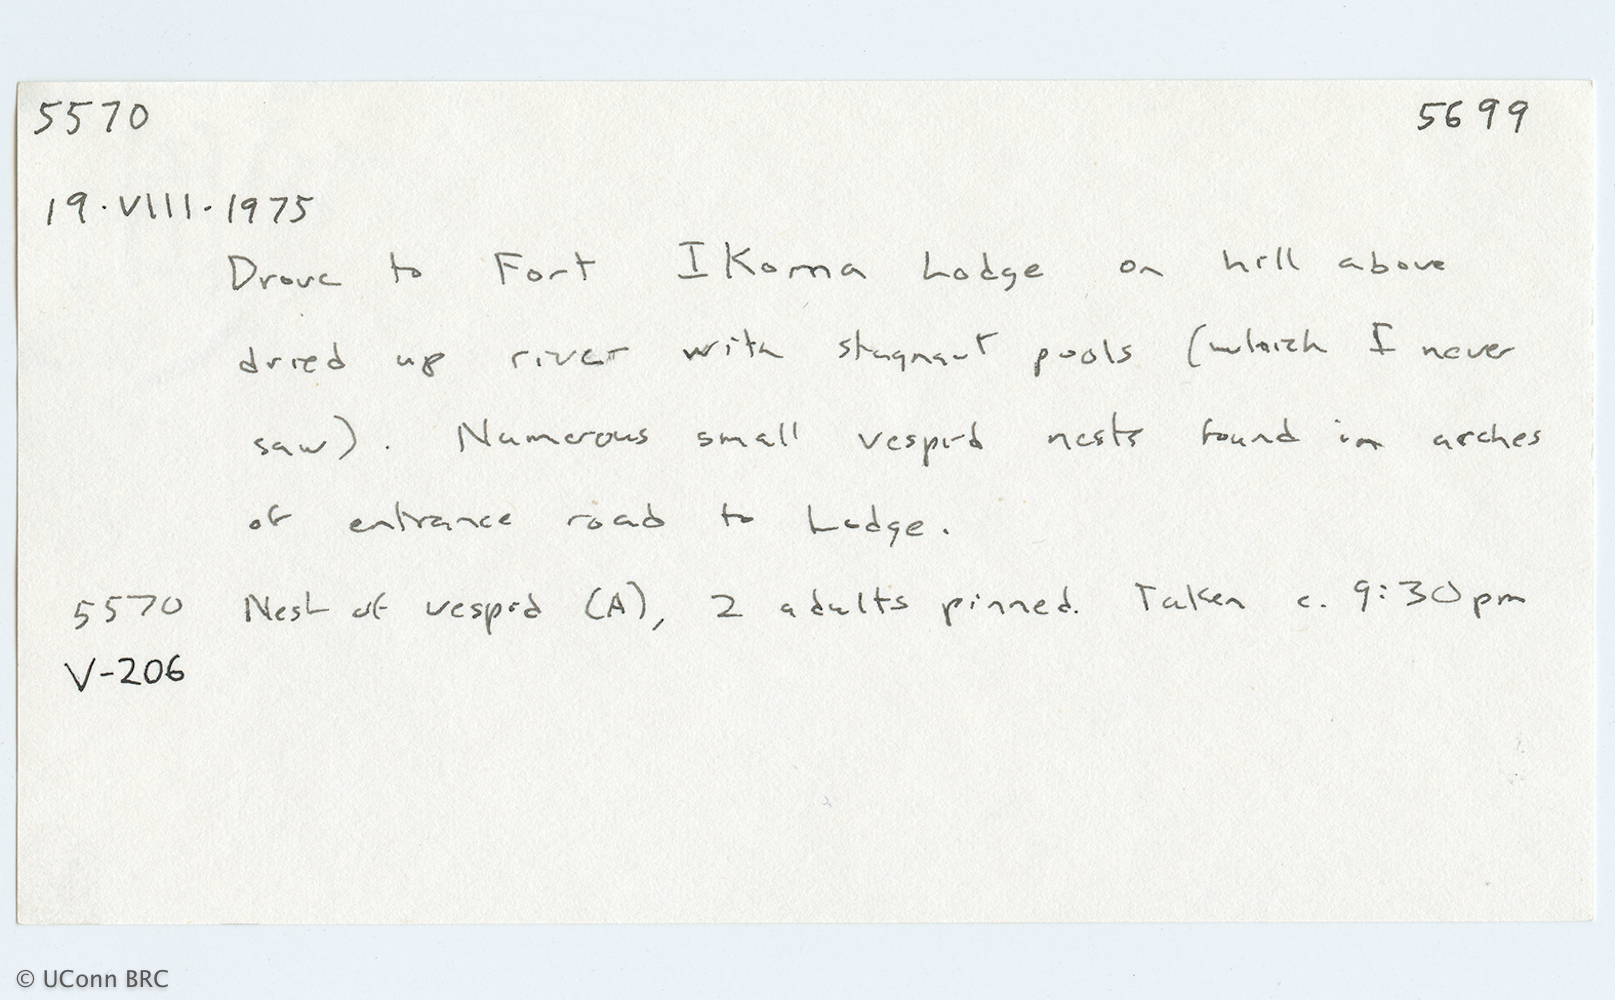 5570 5699
19·VIII·1975
Drove to Fort IKoma Lodge on hill above
dried up river with stagnant pools (which I never
saw). Numerous small vespid nests found in arches
of entrance road to Lodge.
5570 Nest of vespid (A), 2 adults pinned. Taken c. 9:30pm
V-206
© UConn BRC